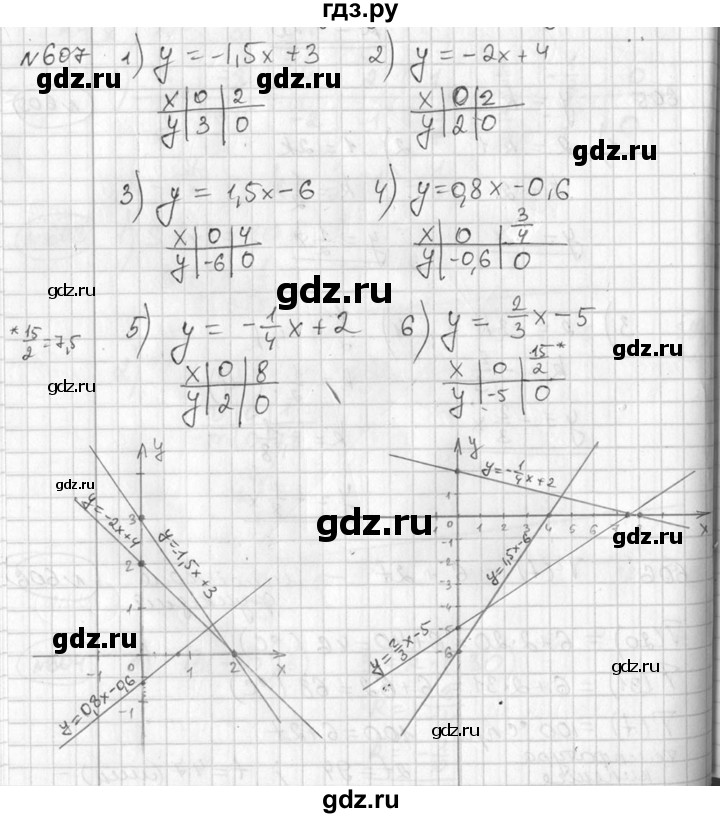 гдз.ру
№607 1) y = -1,5x + 3 2) y = -2x + 4
x | 0 | 2
y | 3 | 0
x | 0 | 2
y | 2 | 0
gdz.ru
gdz.ru
3) y = 1,5x - 6 4) y = 0,8x - 0,6
x | 0 | 4
y | -6 | 0
x | 0 | 3/4
y | -0,6 | 0
gdz.ru
gdz.ru
* 15/2 = 7,5
5) y = -1/4 x + 2 6) y = 2/3 x - 5
x | 0 | 8
y | 2 | 0
x | 0 | 15/2 *
y | -5 | 0
gdz.ru
y
3
2
1
-1 0 1 2 x
-1
y = -2x + 4
y = -1,5x + 3
y = 0,8x - 0,6
gdz.ru
gdz.ru
gdz.ru
y
y = -1/4 x + 2
1
0 1 2 3 4 5 6 7 8 x
-1
-2
-4
-5
-6
y = 1,5x - 6
y = 2/3 x - 5
gdz.ru
gdz.ru
gdz.ru
gdz.ru